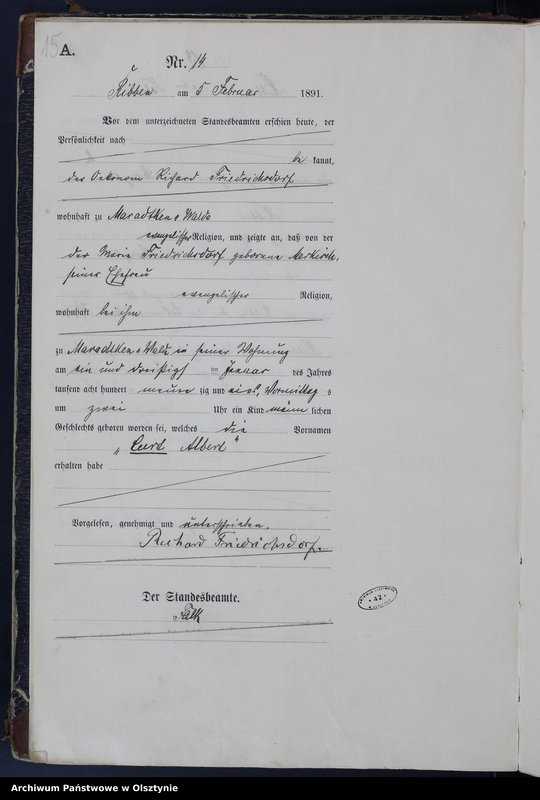 15
A.
Nr. 14
Ribben am 5 Februar 1891.
Vor dem unterzeichneten Standesbeamten erschien heute, der
Persönlichkeit nach
be kannt,
der Oekonom Richard Friedrichsdorf
wohnhaft zu Maradtken Walde
evangelischer Religion, und zeigte an, daß von der
der Marie Friedrichsdorf geborene
seiner Ehefrau
evangelischer Religion,
wohnhaft bei ihm
zu Maradtken Walde in seiner Wohnung
am ein und dreißigs im Januar des Jahres
tausend acht hundert neun zig und eins, Vormittag s
um zwei Uhr ein Kind männ lichen
Geschlechts geboren worden sei, welches die Vornamen
„ Curt Albert "
erhalten habe
Vorgelesen, genehmigt und unterschrieben.
Richard Friedrichsdorf.
Der Standesbeamte.
Falk
42
Archiwum Państwowe w Olsztynie